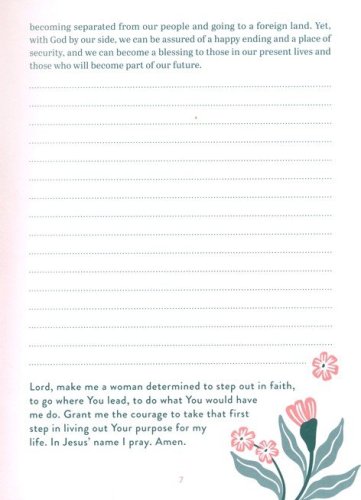 becoming separated from our people and going to a foreign land. Yet,
with God by our side, we can be assured of a happy ending and a place of
security, and we can become a blessing to those in our present lives and
those who will become part of our future.
Lord, make me a woman determined to step out in faith,
to go where You lead, to do what You would have
me do. Grant me the courage to take that first
step in living out Your purpose for my
life. In Jesus' name I pray. Amen.
7